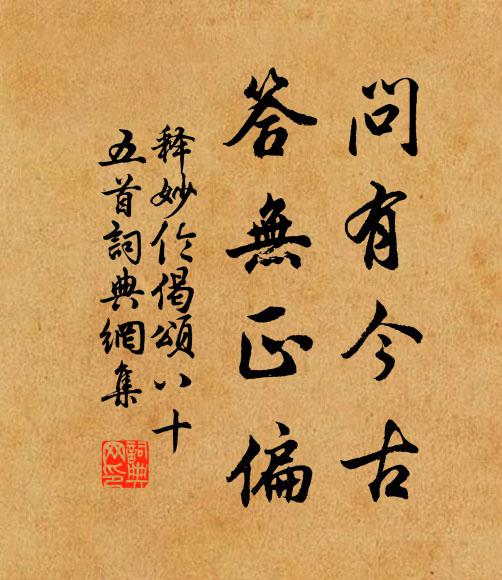 問有今古
答無正偏
釋妙伦偈頌八十
五首詞典網集